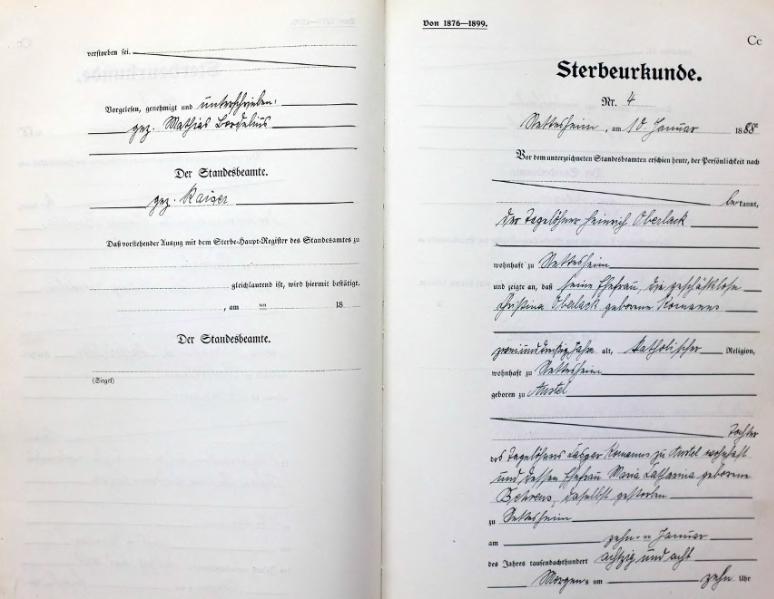 verstorben sei.
Vorgelesen, genehmigt und unterschrieben.
gez. Mathias Bordelius
Der Standesbeamte.
gez. Kaiser
Daß vorstehender Auszug mit dem Sterbe-Haupt-Register des Standesamtes zu
gleichlautend ist, wird hiermit bestätigt.
, am ten 18
Der Standesbeamte.
(Siegel)
Von 1876—1899.
Cc
Sterbeurkunde.
Nr. 4
Nettesheim, am 10. Januar 1888
Vor dem unterzeichneten Standesbeamten erschien heute, der Persönlichkeit nach
bekannt,
der Tagelöhner Heinrich Oberlack
wohnhaft zu Nettesheim
und zeigte an, daß seine Ehefrau, die geschäftslose
Christina Oberlack geborene Komanns
zweiunddreißig Jahre alt, katholischer Religion,
wohnhaft zu Nettesheim
geboren zu Anstel
Tochter
des Tagelöhners Caspar Komanns zu Anstel wohnhaft
und dessen Ehefrau Maria Catharina geborene
Behrens, daselbst gestorben
zu Nettesheim
am zehnten Januar
des Jahres tausendachthundert achtzig und acht
Morgens um zehn Uhr